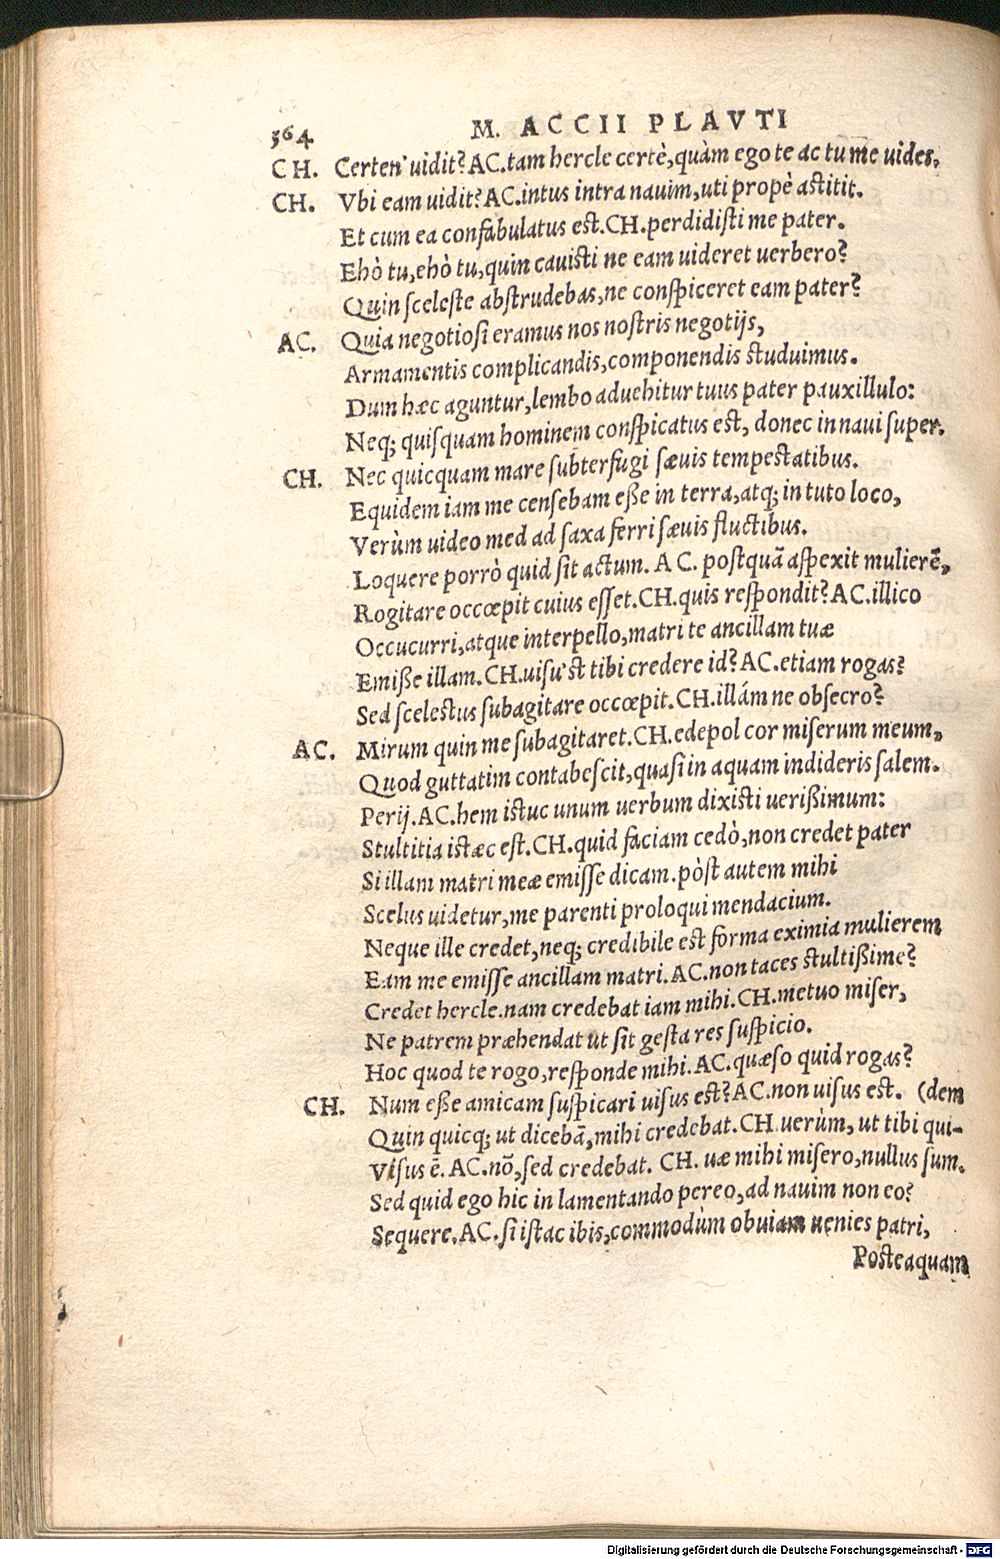 364 M. ACCII PLAVTI
CH. Certen' uidit? AC. tam hercle certè, quàm ego te ac tu me uides.
CH. Vbi eam uidit? AC. intus intra nauim, uti propè astitit.
Et cum ea confabulatus est. CH. perdidisti me pater.
Ehò tu, ehò tu, quin cauisti ne eam uideret uerbero?
Quin sceleste abstrudebas, ne conspiceret eam pater?
AC. Quia negotiosi eramus nos nostris negotijs,
Armamentis complicandis, componendis studuimus.
Dum hæc aguntur, lembo aduehitur tuus pater pauxillulo:
Neq; quisquam hominem conspicatus est, donec in naui super.
CH. Nec quicquam mare subterfugi sæuis tempestatibus.
Equidem iam me censebam eße in terra, atq; in tuto loco,
Verùm uideo med ad saxa ferri sæuis fluctibus.
Loquere porrò quid sit actum. AC. postquã aspexit mulierẽ,
Rogitare occœpit cuius esset. CH. quis respondit? AC. illico
Occucurri, atque interpello, matri te ancillam tuæ
Emiße illam. CH. uisu'st tibi credere id? AC. etiam rogas?
Sed scelestus subagitare occœpit. CH. illám ne obsecro?
AC. Mirum quin me subagitaret. CH. edepol cor miserum meum,
Quod guttatim contabescit, quasi in aquam indideris salem.
Perij. AC. hem istuc unum uerbum dixisti uerißimum:
Stultitia istæc est. CH. quid faciam cedò, non credet pater
Si illam matri meæ emisse dicam. pòst autem mihi
Scelus uidetur, me parenti proloqui mendacium.
Neque ille credet, neq; credibile est forma eximia mulierem
Eam me emisse ancillam matri. AC. non taces stultißime?
Credet hercle. nam credebat iam mihi. CH. metuo miser,
Ne patrem præhendat ut sit gesta res suspicio.
Hoc quod te rogo, responde mihi. AC. quæso quid rogas?
CH. Num eße amicam suspicari uisus est? AC. non uisus est. (dem
Quin quicq; ut dicebã, mihi credebat. CH. uerùm, ut tibi qui-
Visus ẽ. AC. nõ, sed credebat. CH. uæ mihi misero, nullus sum.
Sed quid ego hic in lamentando pereo, ad nauim non eo?
Sequere. AC. si istac ibis, commodùm obuiam uenies patri,
Posteaquam
Digitalisierung gefördert durch die Deutsche Forschungsgemeinschaft - DFG